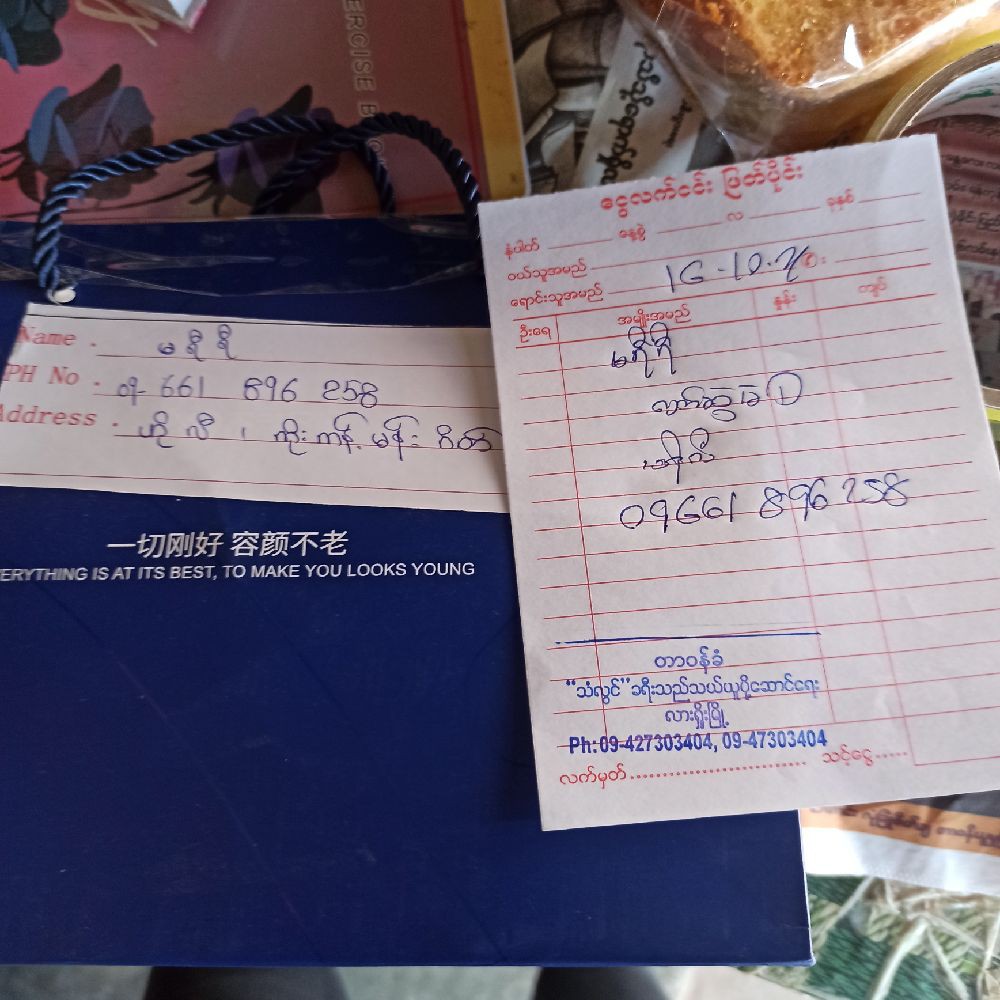 ERCISE B
Name . မရီရီ
PH No . 09 661 896 258
Address . ဟိုလီ ၊
一切刚好 容颜不老
ERYTHING IS AT ITS BEST, TO MAKE YOU LOOKS YOUNG
ငွေလက်ငင်း ဖြတ်ပိုင်း
နံပါတ် နေ့စွဲ လ ခုနှစ်
ဝယ်သူအမည်
ရောင်းသူအမည် 16-10-
ဦးရေ အမျိုးအမည် နှုန်း ကျပ်
မရီရီ
လက်ဆွဲအိတ် ①
ဟိုလီ
09661 896 258
တာဝန်ခံ
"သံလွင်" ခရီးသည်သယ်ယူပို့ဆောင်ရေး
လားရှိုးမြို့
Ph: 09-427303404, 09-47303404
လက်မှတ် သင့်ငွေ